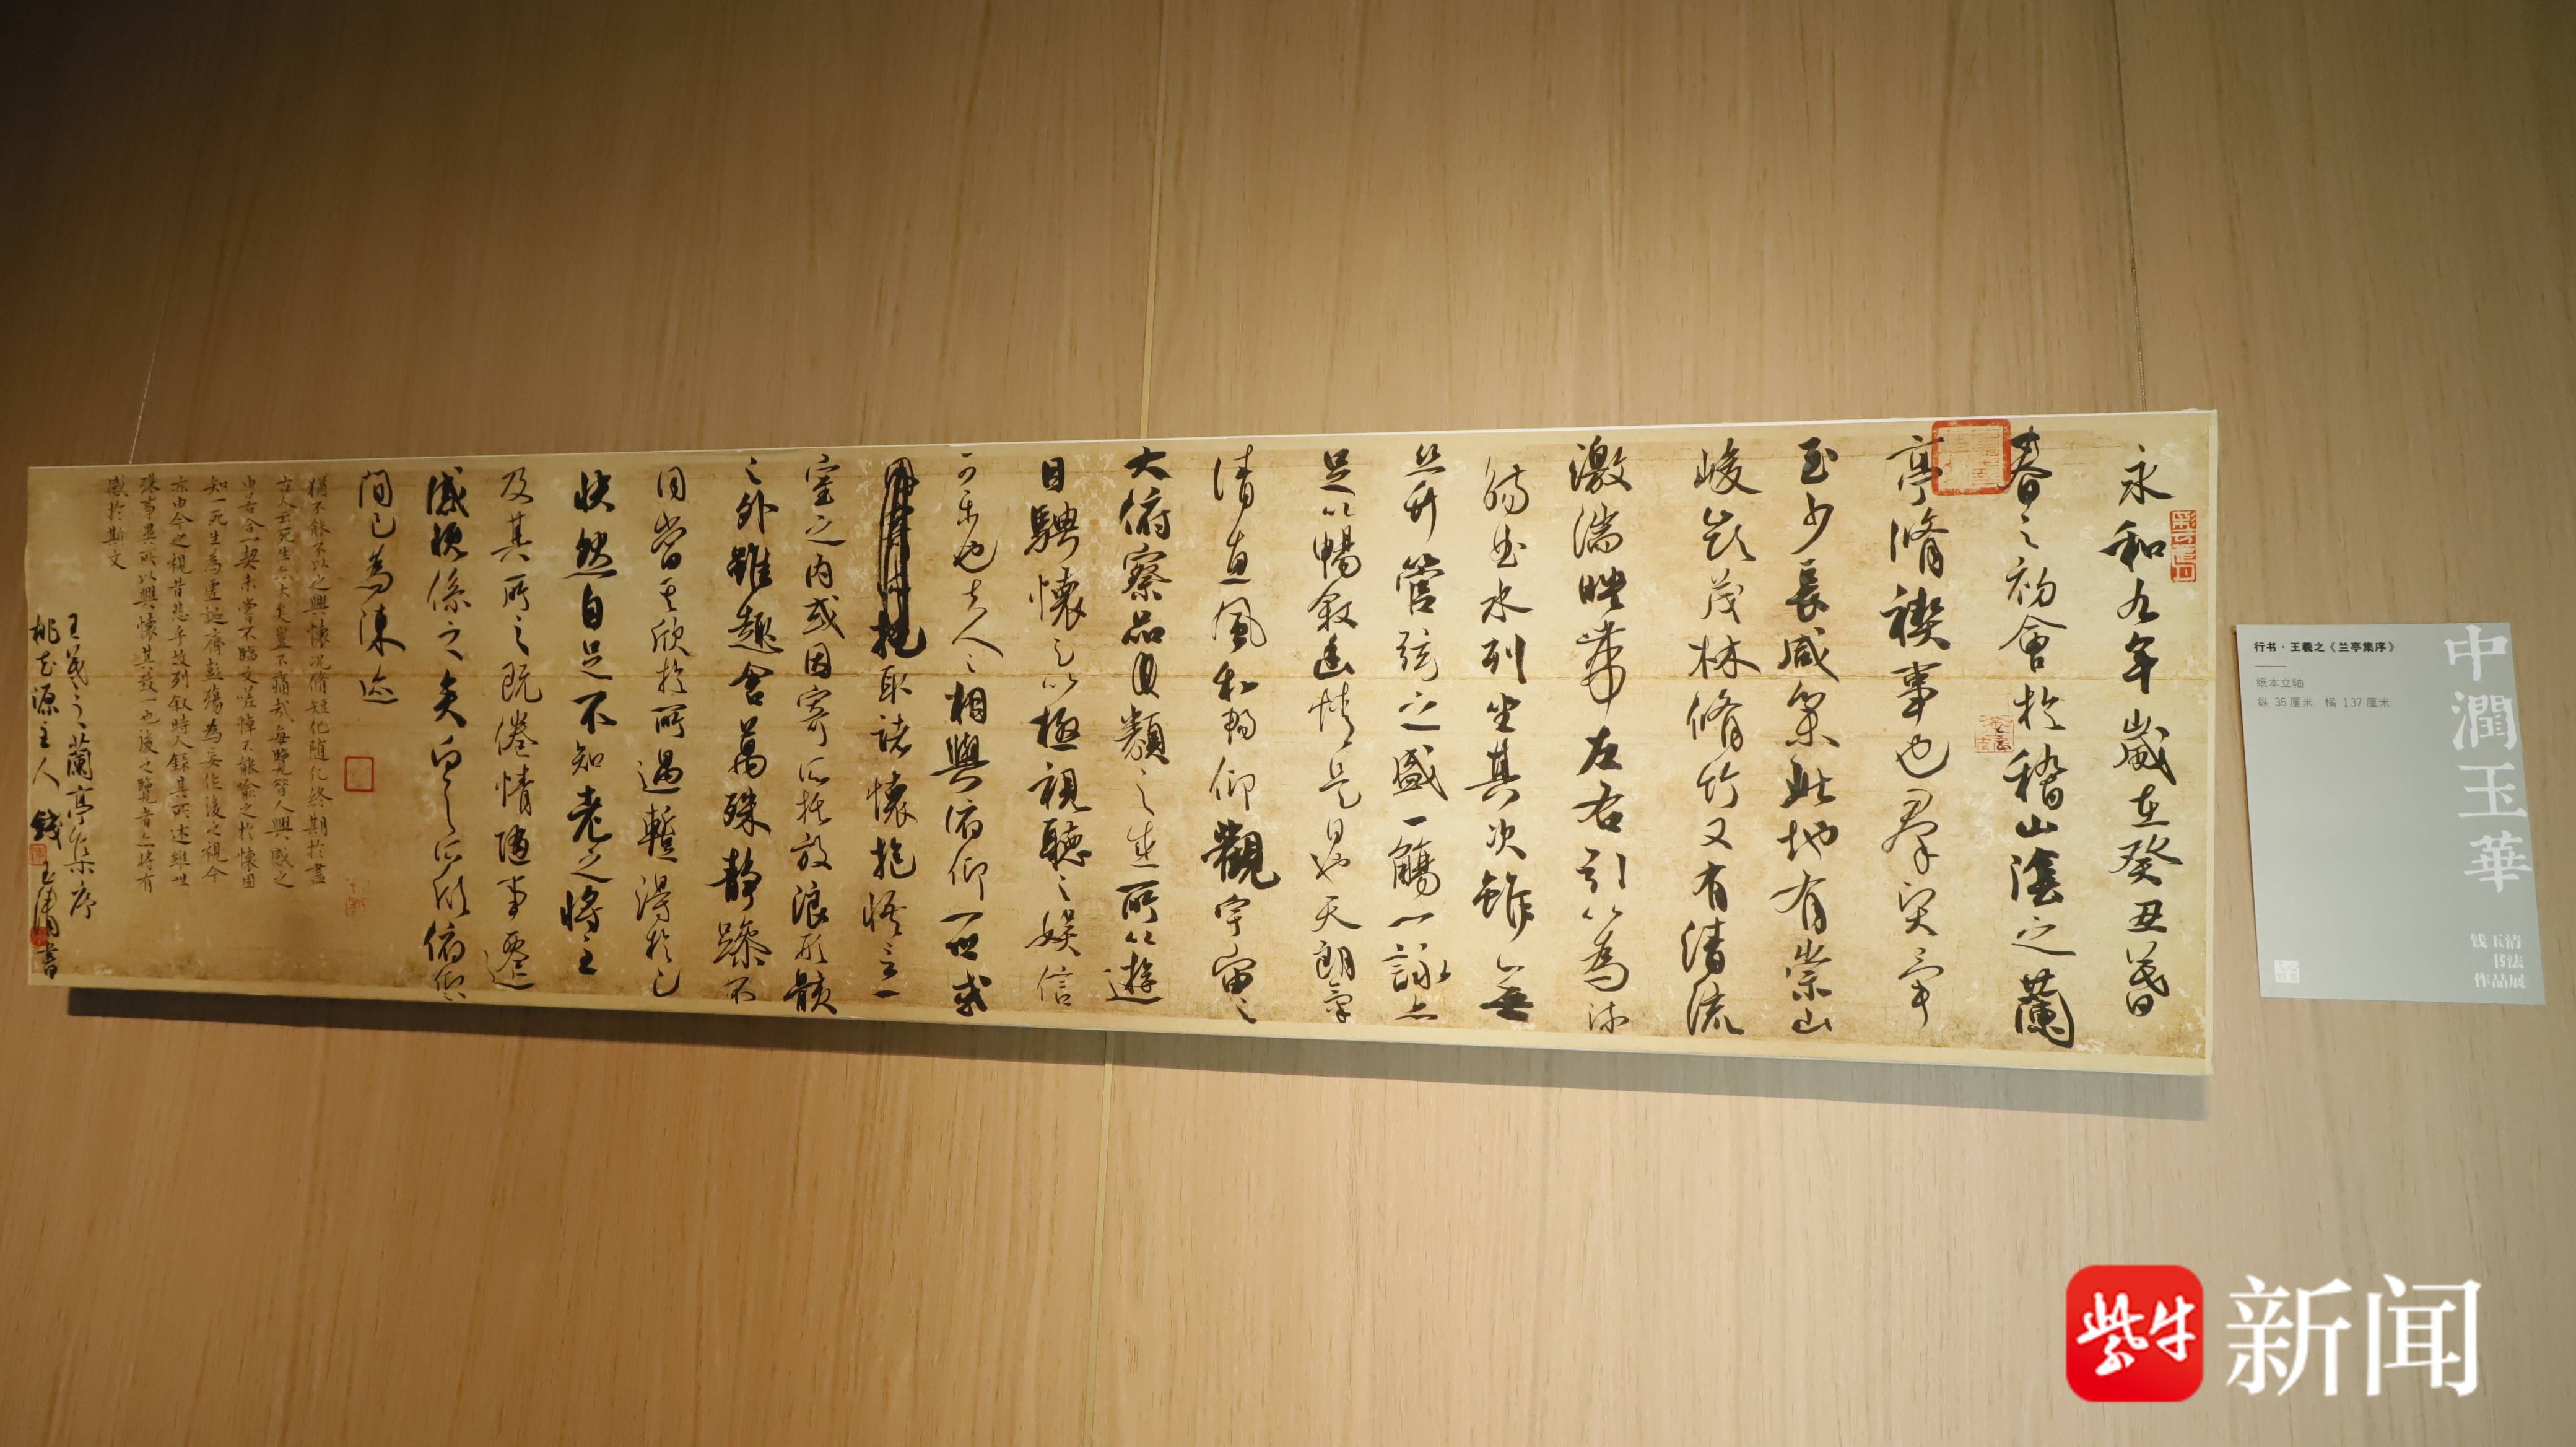 永和九年歲在癸丑暮
春之初會於稽山陰之蘭
亭脩禊事也羣賢畢
至少長咸集此地有崇山
峻嶺茂林脩竹又有清流
激湍映帶左右引以為流
觴曲水列坐其次雖無
絲竹管弦之盛一觴一詠亦
足以暢敘幽情是日也天朗氣
清惠風和暢仰觀宇宙之
大俯察品類之盛所以遊
目騁懷足以極視聽之娛信
可樂也夫人之相與俯仰一世或
取諸懷抱悟言一
室之內或因寄所託放浪形骸
之外雖趣舍萬殊靜躁不
同當其欣於所遇暫得於己
快然自足不知老之將至
及其所之既倦情隨事遷
感慨係之矣向之所欣俯仰
間已為陳迹
猶不能不以之興懷況脩短化隨化終期於盡
古人云死生亦大矣豈不痛哉每覽昔人興感之
由若合一契未嘗不臨文嗟悼不能喻之於懷固
知一死生為虛誕齊彭殤為妄作後之視今
亦由今之視昔悲乎故列叙時人錄其所述雖世
殊事異所以興懷其致一也後之覽者亦將有
感於斯文
王羲之蘭亭集序
桃花源主人 錢玉清書
行书·王羲之《兰亭集序》
纸本立轴
纵 35厘米 横 137厘米
中潤玉華
钱玉清
书法
作品展
紫牛新闻